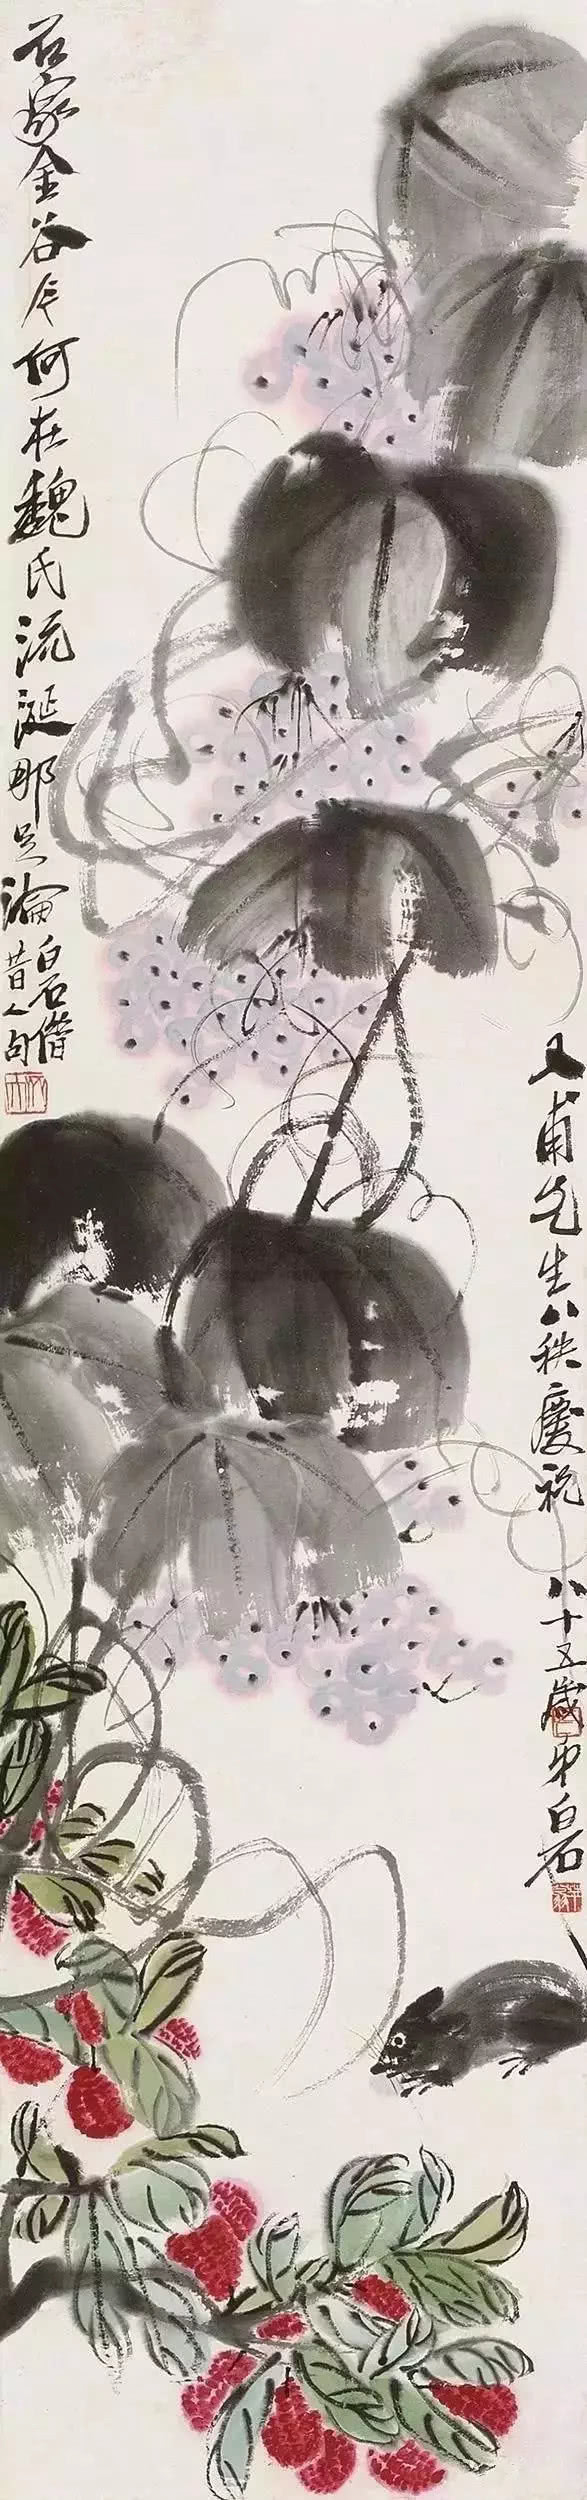 甫先生八秩慶祝 八十五歲弟白石
石家金谷今何在魏氏流涎那足論
白石借
昔人句